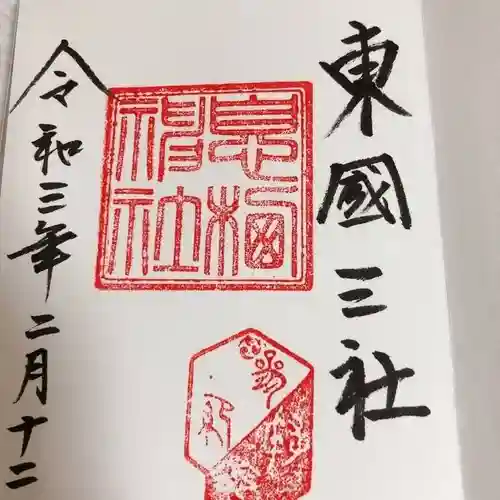 東國三社
息栖神社
令和三年二月十二